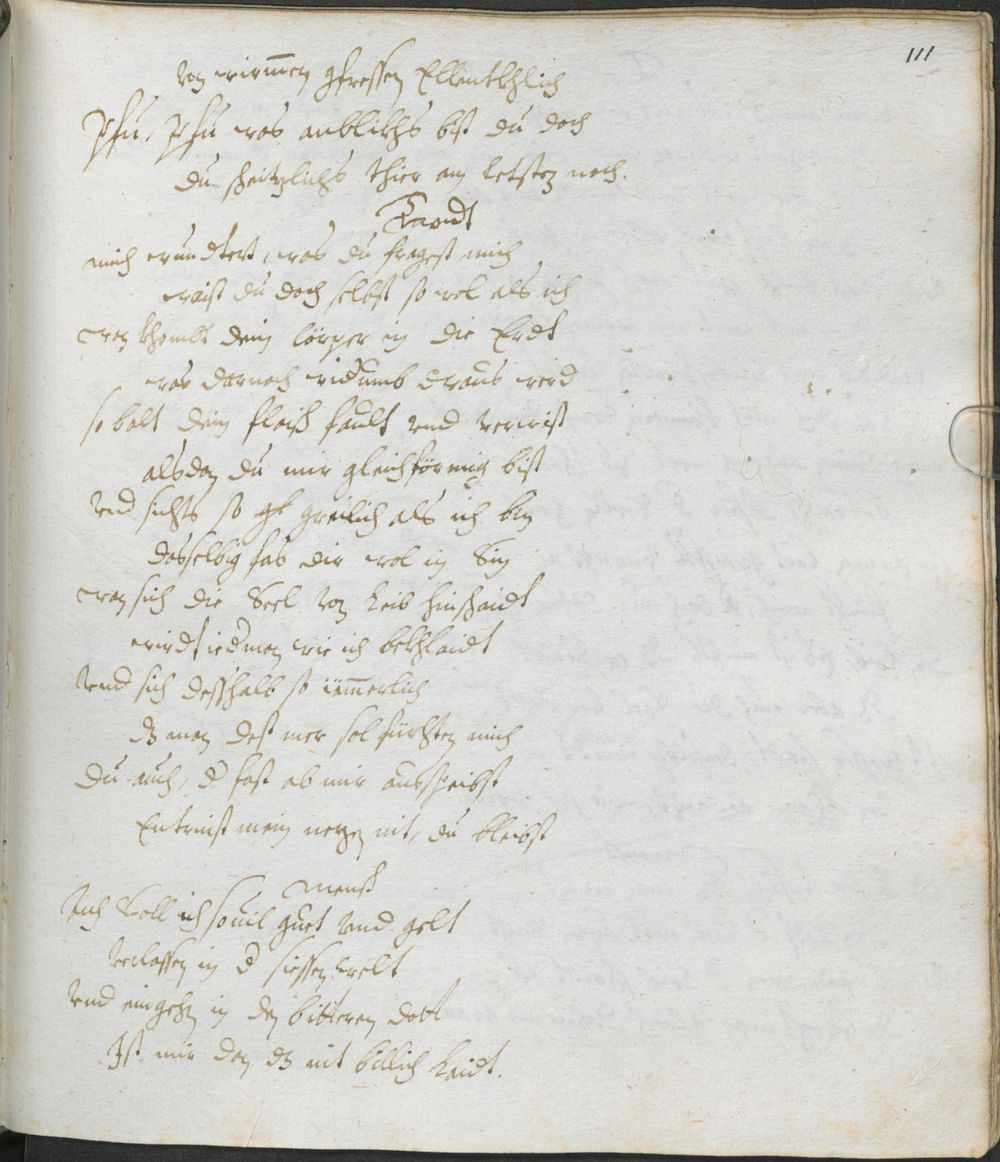 111
Von wirmen gfressen Ellentkhlich
Pfu, Pfu was anblikhs bist du doch
du scheitzlichs thier am letsten noch.
Taodt
mich wundtert, was du fragest mich
waist du doch selbst so wol als ich
wan khombt dein cörper in die Erdt
was darnach widumb draus werd
so balt dein fleisch fault vnd verwist
alsdan du mir gleichförmig bist
Vnd sichts so gf greilich als ich bin
dasselbig fas dir wol in Sin
wan sich die Seel von Leib hinschaidt
wirdt iedman wie ich bekhlaidt
Vnd sich desshalb so iämmerlich
dz man dest mer sol fürchten mich
du auch, d fast ab mir ausspeibst
Entrinst mein nezen nit, du bleibst
mensch
Ach Soll ich souil guet vnd gelt
Verlassen in d siessen welt
Vnd eingehn in den bitteren dott
Ist mir dan dz nit billich Laidt.